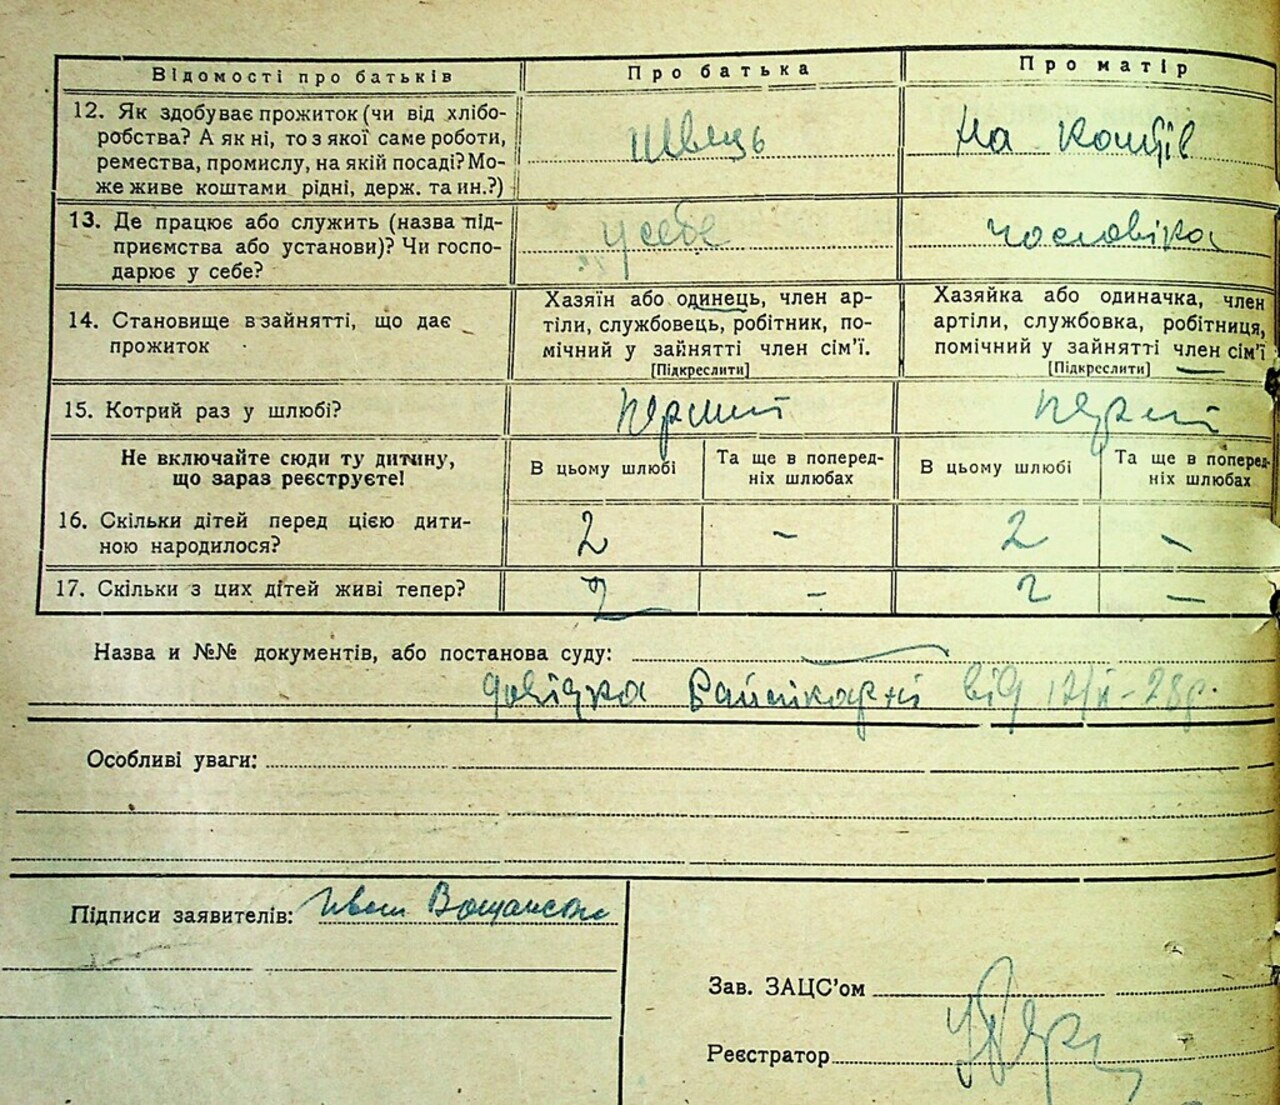 Відомості про батьків Про батька Про матір
12. Як здобуває прожиток (чи від хлібо-
робства? А як ні, то з якої саме роботи,
ремества, промислу, на якій посаді? Мо-
же живе коштами рідні, держ. та ин.?)
Швець
На коштів
13. Де працює або служить (назва під-
приємства або установи)? Чи госпо-
дарює у себе?
у себе
чоловіка
14. Становище в зайнятті, що дає
прожиток
Хазяїн або одинець, член ар-
тіли, службовець, робітник, по-
мічний у зайнятті член сім'ї.
[Підкреслити]
Хазяйка або одиначка, член
артіли, службовка, робітниця,
помічний у зайнятті член сім'ї
[Підкреслити]
15. Котрий раз у шлюбі? перший перший
Не включайте сюди ту дитину,
що зараз реєструєте!
В цьому шлюбі
Та ще в поперед-
ніх шлюбах
В цьому шлюбі
Та ще в поперед-
ніх шлюбах
16. Скільки дітей перед цією дити-
ною народилося?
2 - 2 -
17. Скільки з цих дітей живі тепер? 2 - 2 -
Назва и №№ документів, або постанова суду:
довідка від
Особливі уваги:
Підписи заявителів: Іван
Зав. ЗАЦС'ом
Реєстратор